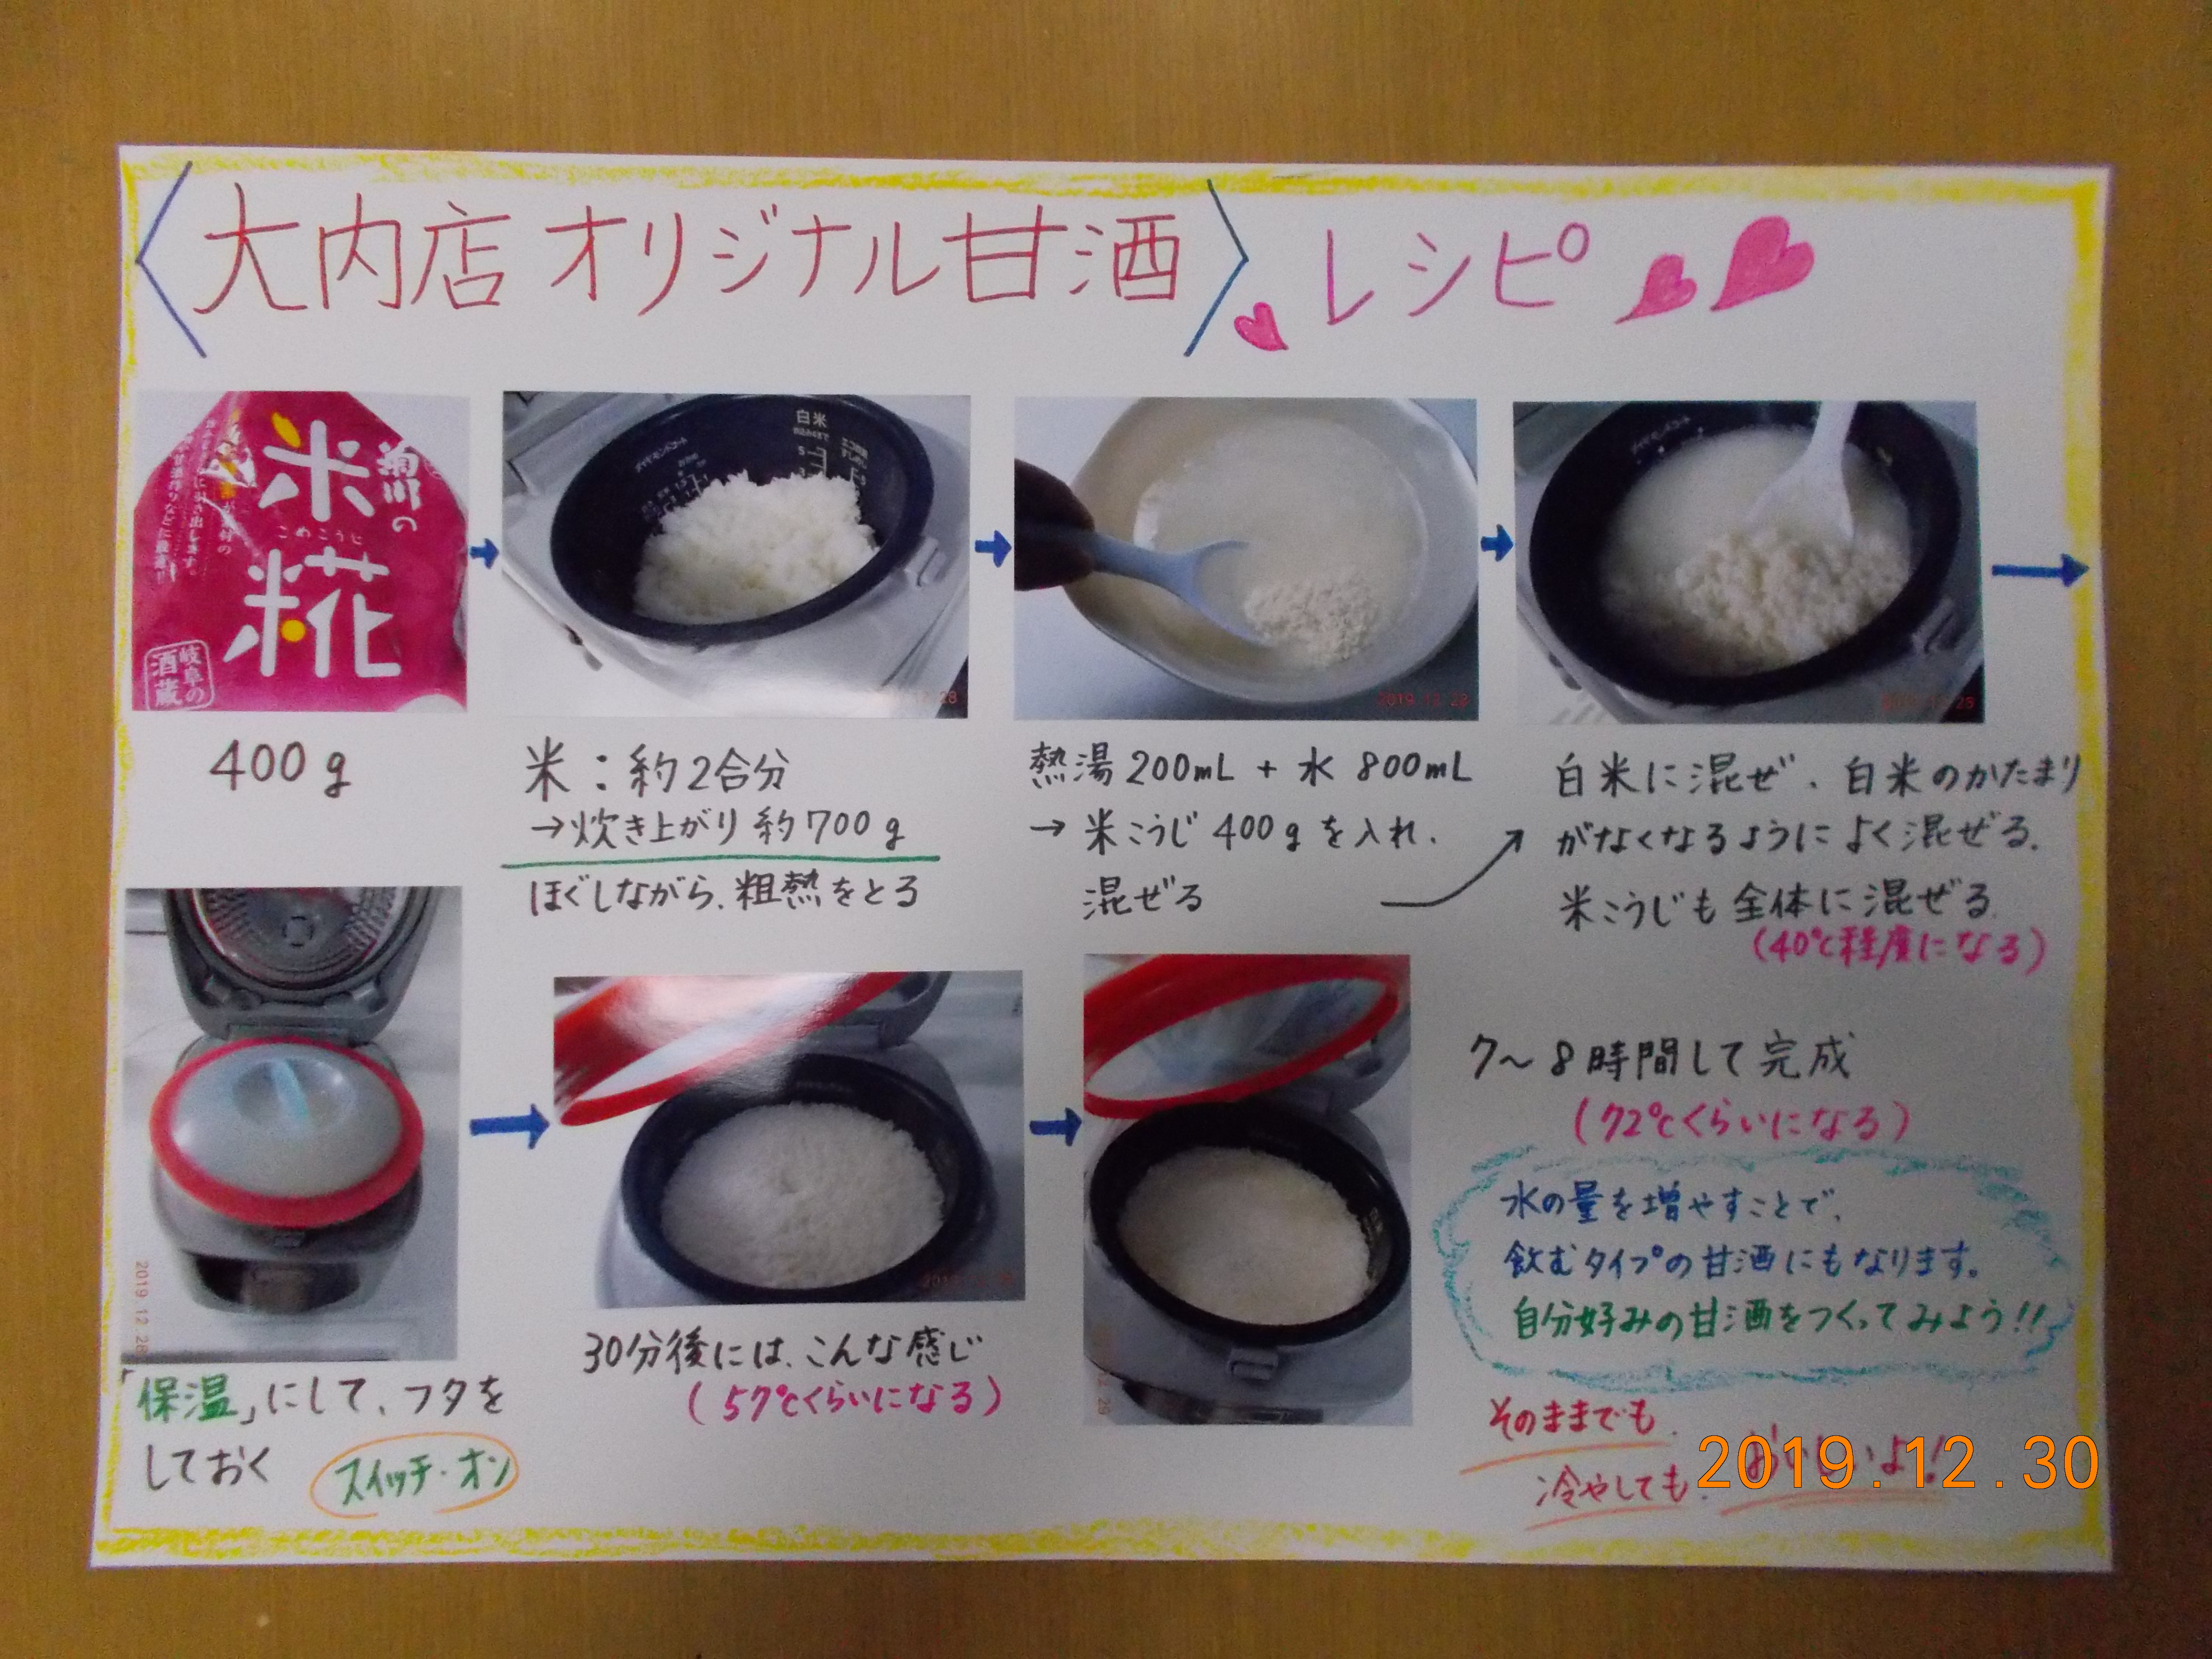 〈大内店 オリジナル甘酒〉レシピ
菊川の
米
こめこうじ
糀
岐阜の
酒蔵
白米
400g
米：約2合分
→炊き上がり 約700g
ほぐしながら、粗熱をとる
熱湯 200mL + 水 800mL
→ 米こうじ 400gを入れ、
混ぜる
白米に混ぜ、白米のかたまり
がなくなるように よく混ぜる。
米こうじも 全体に混ぜる
(40℃程度になる)
「保温」にして、フタを
しておく
スイッチ・オン
30分後には、こんな感じ
(57℃くらいになる)
7～8時間して完成
(72℃くらいになる)
水の量を増やすことで、
飲むタイプの甘酒にもなります。
自分好みの甘酒をつくってみよう!!
そのままでも、
冷やしても、おいしいよ!
2019.12.28
2019.12.28
2019.12.30